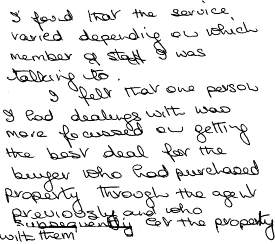 I found that the service
varied depending on which
member of staff I was
talking to.
I felt that one person
I had dealings with was
more focussed on getting
the best deal for the
buyer who had purchased
property through the agent
previously and who
subsequently let the property
with them